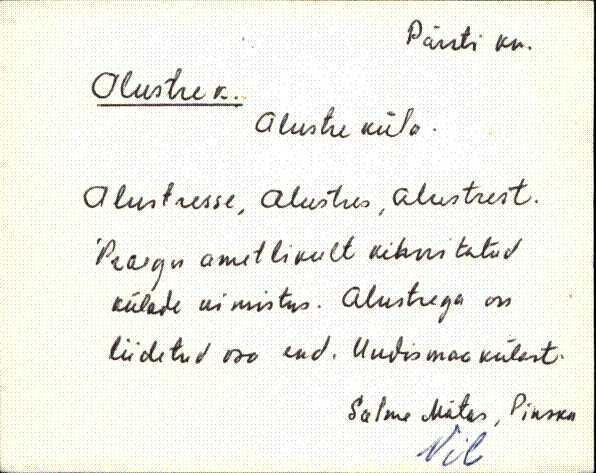 Pärsti kn.
Alustre k.
Alustre küla.
Alustresse, Alustres, Alustrest.
Praegu ametlikult kehvistatud
külade nimistus. Alustrega on
liidetud osa end. Uudismaa külast.
Salme Mätas, Pinska
Vil